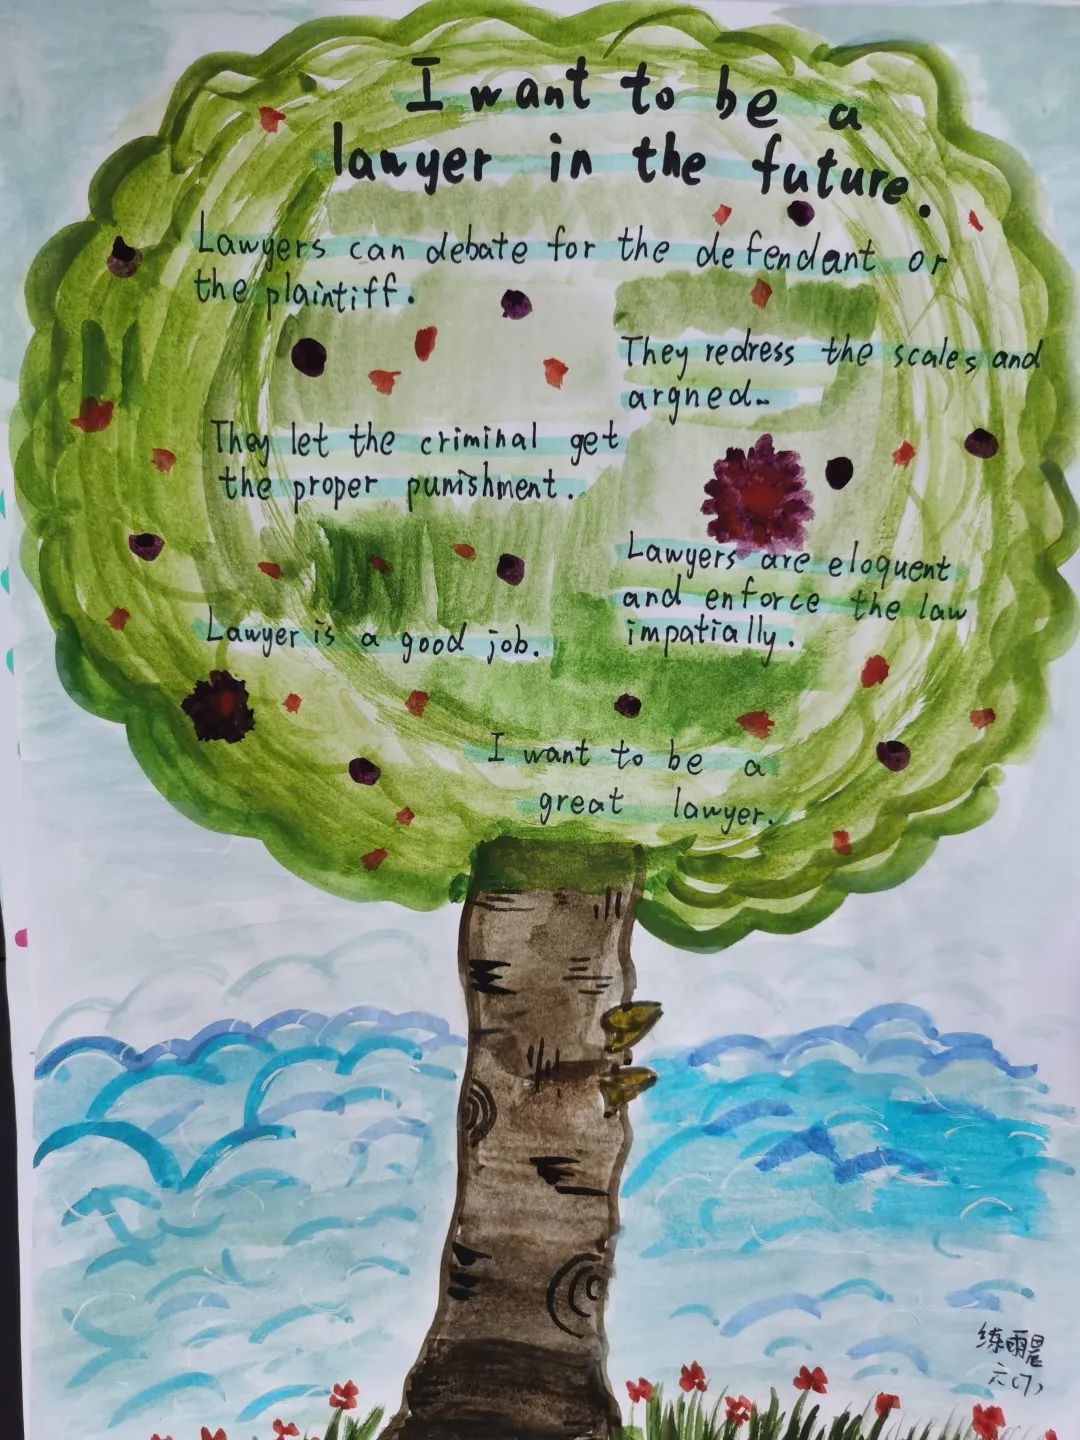 I want to be a
lawyer in the future.
Lawyers can debate for the defendant or
the plaintiff.
They redress the scales and
argned.
They let the criminal get
the proper punishment.
Lawyers are eloquent
and enforce the law
impatially.
Lawyer is a good job.
I want to be a
great lawyer.
练雨晨
六(7)